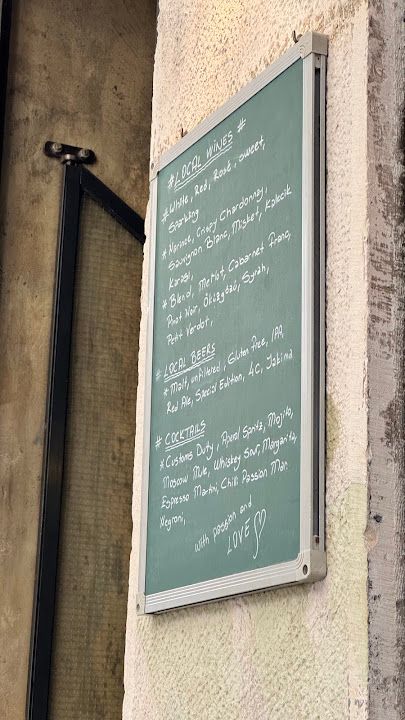 # LOCAL WINES #
* White, Red, Rose, sweet,
Sparkling
* Narince, Crispy Chardonnay,
Sauvignon Blanc, Misket, Kalecik
Karası,
* Blend, Merlot, Cabarnet Franc,
Pinot Noir, Öküzgözü, Syrah,
Petit Verdot,
# LOCAL BEERS
* Malt, unfiltered, Gluten free, IPA
Red Ale, Special Edition, 4C, Yakima
# COCKTAILS
* Customs Duty, Aperol Spritz, Mojito,
Moscow Mule, Whiskey Sour, Margarita,
Espresso Martini, Chilli Passion Mar.
Negroni,
with passion and
LOVE